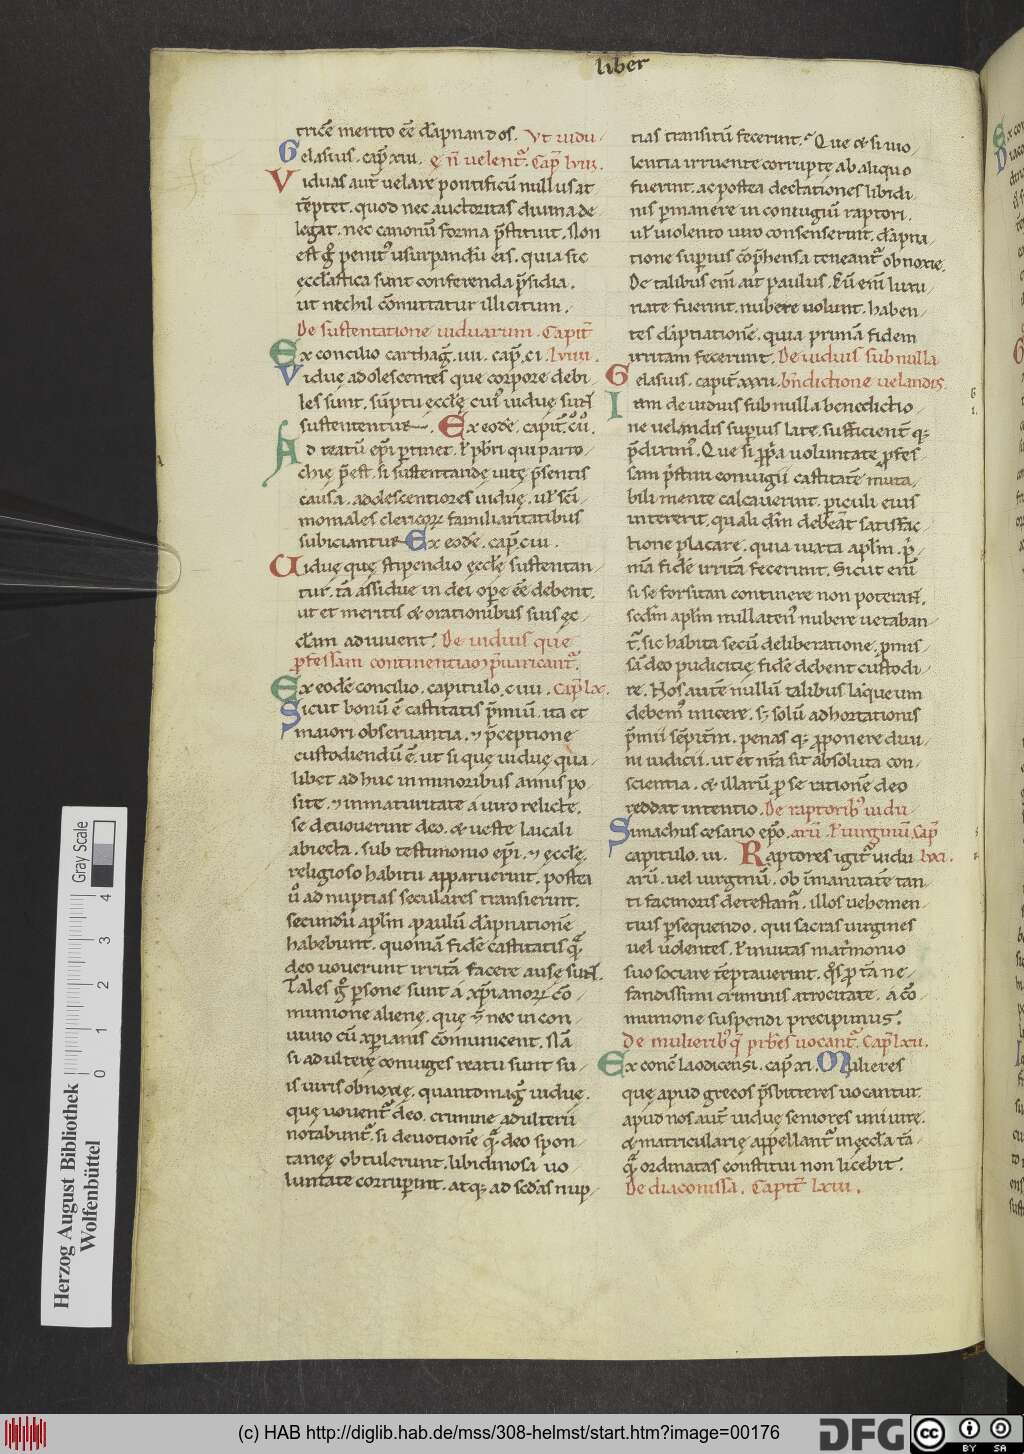 liber
tricē merito eē dāpnandos. Vt uidu
Gelasius. cap̄. xiii. ę n̄ velent᷑. Cap̄ lviii.
Viduas aut̄ uelare pontificū nullus at
tēptet. quod nec auctoritas diuina de
legat. nec canonū forma p̄stituit. Non
est g̊ penit᷒ usurpandū eis. quia sic
ęccl̄astica sunt conferenda p̄sidia.
ut nichil cōmittatur illicitum.
De sustentatione uiduarum. Capit̄
Ex concilio carthaḡ. iiii. cap̄. ci. lviiii.
Viduę adolescentes que corpore debi
les sunt. sūptu ęccl̄ę cui᷒ uiduę sunt
sustententur. Ex eodē. capit̄. cii.
Ad reatū ep̄i pertinet. ł p̄bri qui parro
chię p̄est. si sustentandę uitę p̄sentis
causa. adolescentiores uiduę. uł sc̄i
moniales clericoꝝ familiaritatibus
subiciantur. Ex eodē. cap̄. ciii.
Viduę quę stipendio ęccl̄ę sustentan
tur. tā assidue in dei oꝑe eē debent.
ut et meritis & orationibus suis ęc
cl̄am adiuuent. De uiduis que
ꝓfessam continentiam p̄uaricant᷑.
Ex eodē concilio. capitulo. ciiii. Cap̄ lx.
Sicut bonū ē castitatis p̄miū. ita et
maiori obseruantia. ⁊ p̄ceptione
custodiendū ē. ut si quę uiduę qua
libet ad huc in minoribus annis po
sitę. ⁊ inmaturitate a uiro relictę.
se deuouerint deo. & ueste laicali
abiecta. sub testimonio ep̄i. ⁊ ęccl̄ę.
religioso habitu apparuerint. postea
ů ad nuptias seculares transierint.
secundū apl̄m paulū dāpnationē
habebunt. quoniā fidē castitatis q̄
deo uouerunt irritā facere ausę sunt.
Tales g̊ ꝑsone sunt a xp̄ianoꝝ cō
munione alienę. que ⁊ nec in con
uiuio cū xp̄ianis cōmunicent. Nā
si adulterę coniuges reatu sunt su
is uiris obnoxię. quantomag᷒ uiduę.
quę uouent᷑ deo. crimine adulterii
notabunt᷑. si deuotionē q̄ deo spon
taneę obtulerunt. libidinosa uo
luntate corruꝑint. atqꝫ ad sc̄das nup
tias transitū fecerint. Que & si uio
lentia irruente corruptę ab aliquo
fuerint. ac postea delectationes libidi
nis ꝑmanere in coniugiū raptori.
uł uiolento uiro consenserint. dāpna
tione superius cōp̄hensa teneant᷑ obnoxie.
De talibus enī ait paulus. Cū enī luxu
riate fuerint. nubere uolunt. haben
tes dāpnationē. quia primā fidem
irritam fecerunt. De uiduis sub nulla
Gelasius. capit̄. xxxii. bn̄dictione uelandis.
Item de uiduis sub nulla benedictio
ne uelandis superius late. sufficient᷑ qꝫ
p̄diximꝰ. Que si ꝓpria uoluntate ꝓfes
sam p̄stini coniugii castitatē muta
bili mente calcauerint. ꝑiculi eius
intererit. quali dn̄m debeāt satisfac
tione placare. quia iuxta apl̄m. p̄
mā fidē irritā fecerunt. Sicut enī
si se forsitan continere non poterant.
sc̄dm apl̄m nullaten᷒ nubere uetaban
t᷑. sic habita secū deliberatione. ꝓmis
sā deo pudicitię fidē debent custodi
re. Nos autē nullū talibus laqueum
debem᷒ inicere. sꝫ solū adhortationis
p̄mii sēpit̄ni. penas qꝫ ꝓponere diui
ni iudicii. ut et nr̄a sit absoluta con
scientia. & illarū ꝑ se rationē deo
reddat intentio. De raptorib᷒ uidu
Simachus cesario ep̄o. arū. ł uirginū. Cap̄
capitulo. iii. Raptores igit᷑ uidu lxi.
arū. uel uirginū. ob īmanitatē tan
ti facinoris detestam᷑. illos uehemen
tius ꝑsequendo. qui sacras uirgines
uel uolentes. ł inuitas matrimonio
suo sociare tēptauerint. q̊s ꝑ tā ne
fandissimi criminis atrocitate. a cō
munione suspendi precipimus.
De mulierib᷒ q̄ p̄rb̄es uocant᷑. Cap̄ lxii.
Ex conc̄ laodicensi. cap̄. xi. Mulieres
quę apud grecos p̄sbiteres uocantur.
apud nos aut̄ uiduę seniores uniuirę.
& matricularię appellant᷑ in ęccl̄a tā
q̄ ordinatas constitui non licebit.
De diaconissa. Capit̄ lxiii.
Herzog August Bibliothek
Wolfenbüttel
0 1 2 3 4
Gray Scale
(c) HAB http://diglib.hab.de/mss/308-helmst/start.htm?image=00176
DFG
cc BY SA